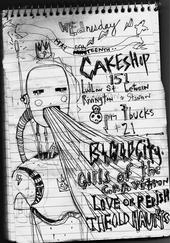 WEdnesday
CAKESHOP
151
Ludlow St between
Rivington + Stanton
7 bucks
21
BLOOD CITY
Girls OF the
LOVE OR PERISH
THE OLD HAUNTS